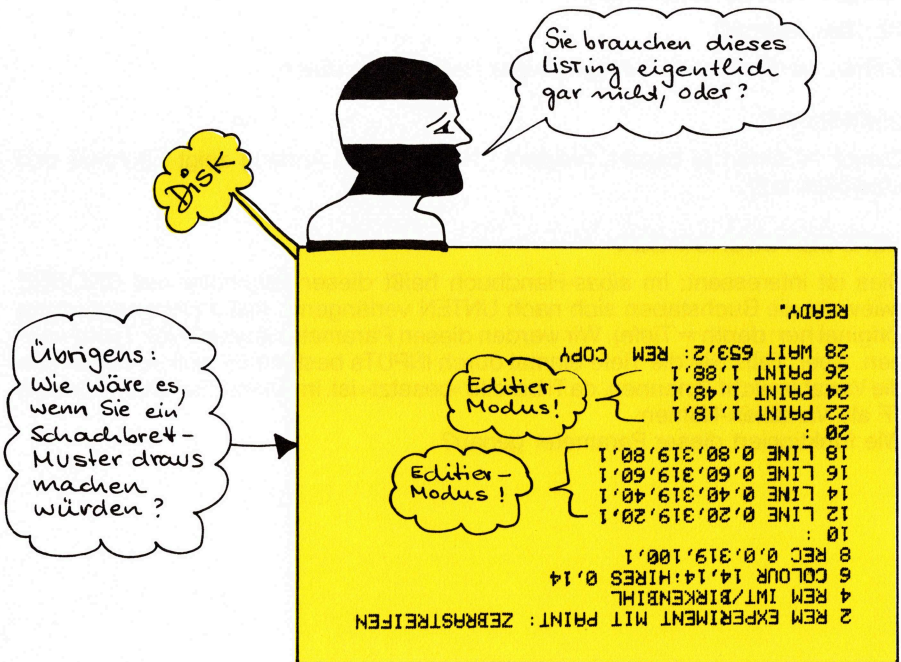 Sie brauchen dieses
Listing eigentlich
gar nicht, oder?
Disk
Übrigens:
Wie wäre es,
wenn Sie ein
Schachbrett-
Muster draus
machen
würden?
Editier-
Modus!
Editier-
Modus!
2 REM EXPERIMENT MIT PAINT: ZEBRASTREIFEN
4 REM IWT/BIRKENBIHL
6 COLOUR 14,14:HIRES 0,14
8 REC 0,0,319,100,1
10 :
12 LINE 0,20,319,20,1
14 LINE 0,40,319,40,1
16 LINE 0,60,319,60,1
18 LINE 0,80,319,80,1
20 :
22 PAINT 1,18,1
24 PAINT 1,48,1
26 PAINT 1,88,1
28 WAIT 653,2: REM COPY
READY.